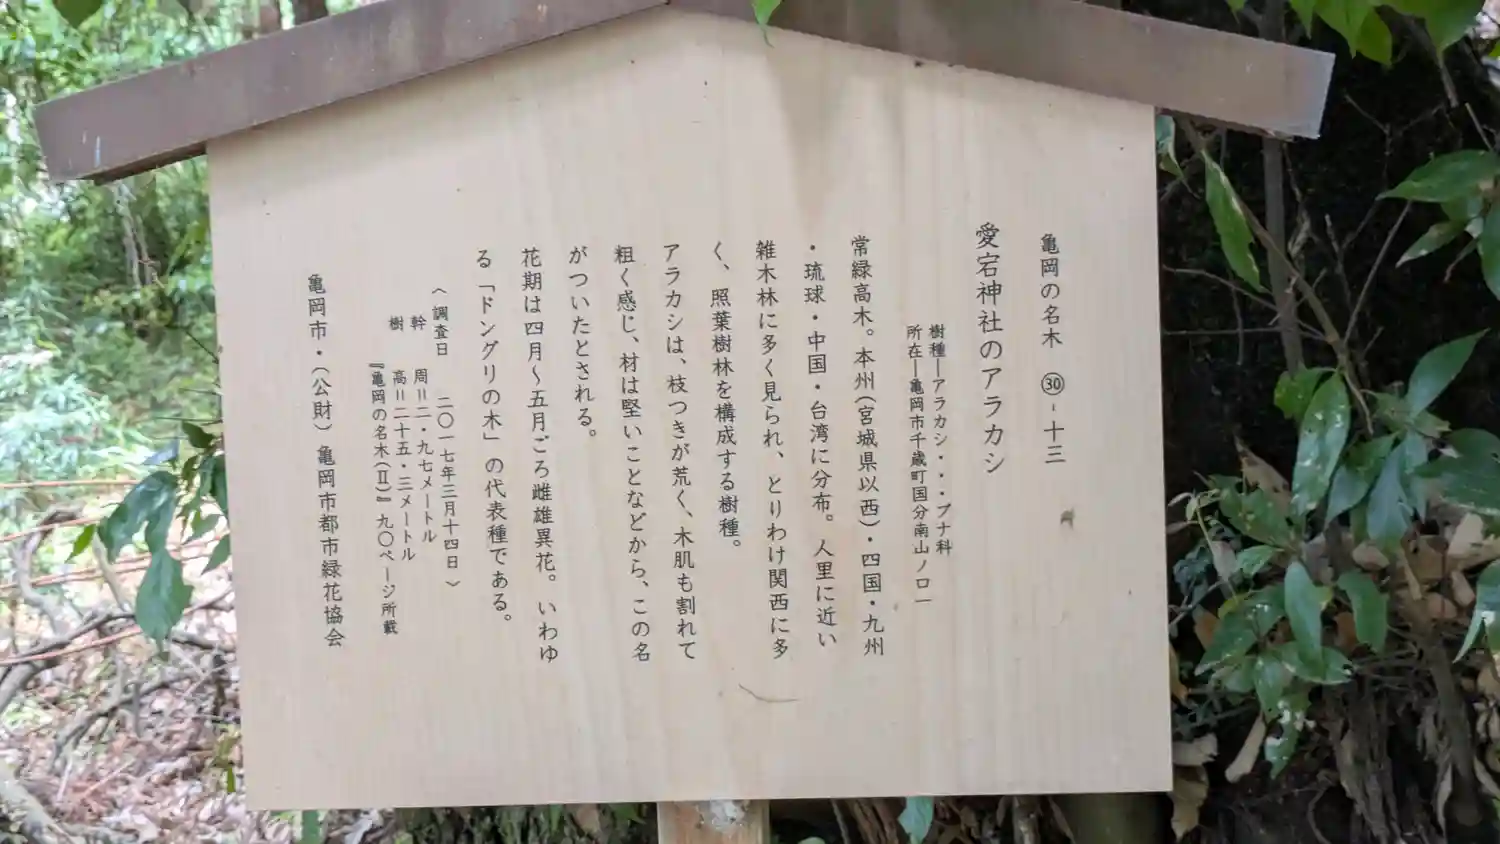 亀岡の名木 ㉚-十三
愛宕神社のアラカシ
樹種―アラカシ・・・ブナ科
所在―亀岡市千歳町国分南山ノ口一
常緑高木。本州(宮城県以西)・四国・九州
・琉球・中国・台湾に分布。人里に近い
雑木林に多く見られ、とりわけ関西に多
く、照葉樹林を構成する樹種。
アラカシは、枝つきが荒く、木肌も割れて
粗く感じ、材は堅いことなどから、この名
がついたとされる。
花期は四月～五月ごろ雌雄異花。いわゆ
る「ドングリの木」の代表種である。
〈調査日 二〇一七年三月十四日〉
幹 周＝二・九七メートル
樹 高＝二十五・三メートル
『亀岡の名木(Ⅱ)』九〇ページ所載
亀岡市・(公財)亀岡市都市緑花協会